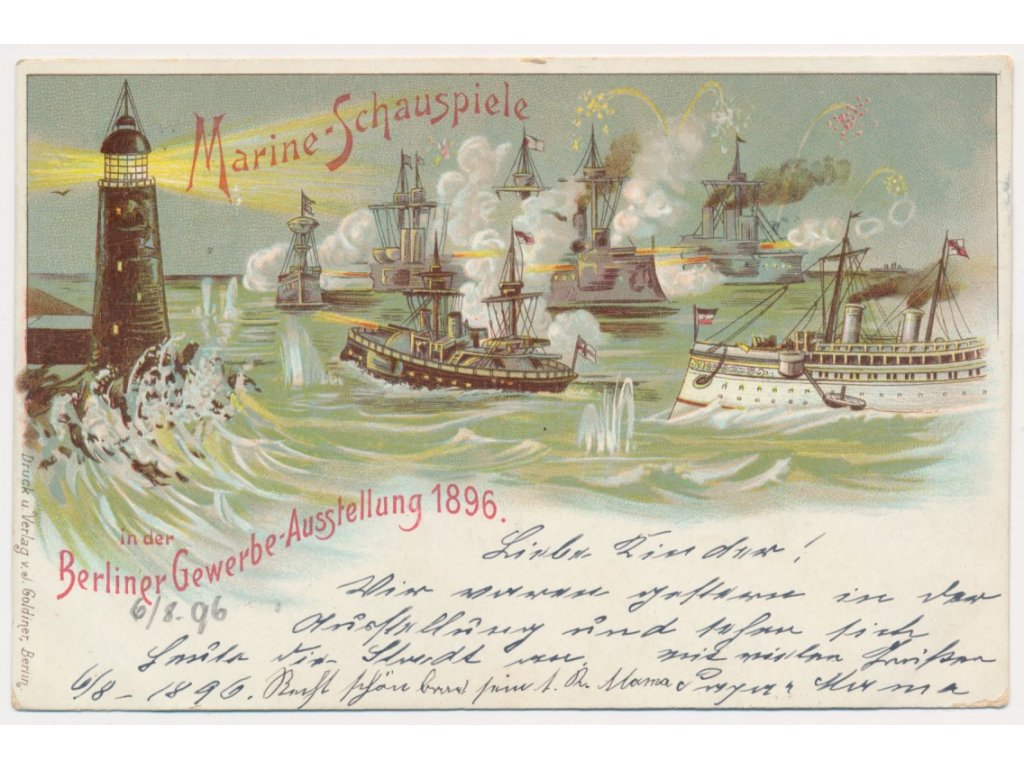 Marine-Schauspiele
in der
Berliner Gewerbe-Ausstellung 1896.
Druck u. Verlag v. J. Goldiner, Berlin.
6/8-96
Liebe Kinder!
Wir waren gestern in der
Ausstellung und sehen sich
heute die Stadt an. mit vielen Grüßen
6/8-1896. Recht schön brav sein Mama Papa Mama